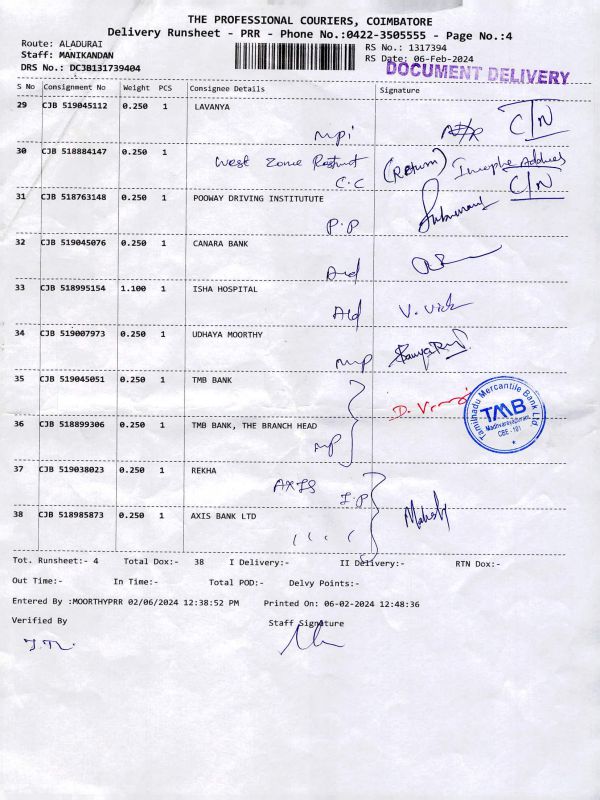 THE PROFESSIONAL COURIERS, COIMBATORE
Delivery Runsheet - PRR - Phone No.:0422-3505555 - Page No.:4
Route: ALADURAI
RS No.: 1317394
Staff: MANIKANDAN
RS Date: 06-Feb-2024
DRS No.: DCJB131739404
DOCUMENT DELIVERY
S No Consignment No Weight PCS Consignee Details Signature
29 CJB 519045112 0.250 1 LAVANYA
C/N
30 CJB 518884147 0.250 1 West Zone
C.C (Return) Address
C/N
31 CJB 518763148 0.250 1 POOWAY DRIVING INSTITUTUTE
P.P
32 CJB 519045076 0.250 1 CANARA BANK
Ald
33 CJB 518995154 1.100 1 ISHA HOSPITAL
Ald V. Vick
34 CJB 519007973 0.250 1 UDHAYA MOORTHY
mp
35 CJB 519045051 0.250 1 TMB BANK
Tamilnadu Mercantile Bank Ltd.
TMB
CBE - 101
36 CJB 518899306 0.250 1 TMB BANK, THE BRANCH HEAD
mp
37 CJB 519038023 0.250 1 REKHA
AXIS I.P
38 CJB 518985873 0.250 1 AXIS BANK LTD
Tot. Runsheet:- 4 Total Dox:- 38 I Delivery:- II Delivery:- RTN Dox:-
Out Time:- In Time:- Total POD:- Delvy Points:-
Entered By :MOORTHYPRR 02/06/2024 12:38:52 PM Printed On: 06-02-2024 12:48:36
Verified By Staff Signature